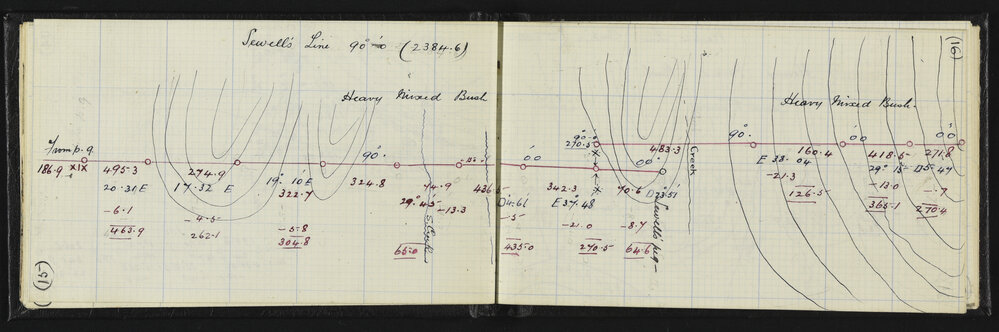 Sewell's Line 90° 0' (2384.6)
Heavy Mixed Bush
from p. 9.
186.9
495.3
274.9
90°
20.31 E
17.32 E
19° 10' E
322.7
324.8
74.9
436.5
29° 45
-13.3
-6.1
-4.5
-5.8
463.9
262.1
304.8
65.0
(15)
(16)
Heavy Mixed Bush.
90°
270.5
483.3
Creek
90°
160.4
418.5
271.8
E 38.04
29° 15
D 5.47
-21.3
-13.0
-.7
126.5
365.1
270.4
342.3
70.6
D 23.51
D 4.61
E 37.48
-.5
-21.0
-8.7
435.0
270.5
64.6
Sewell's peg